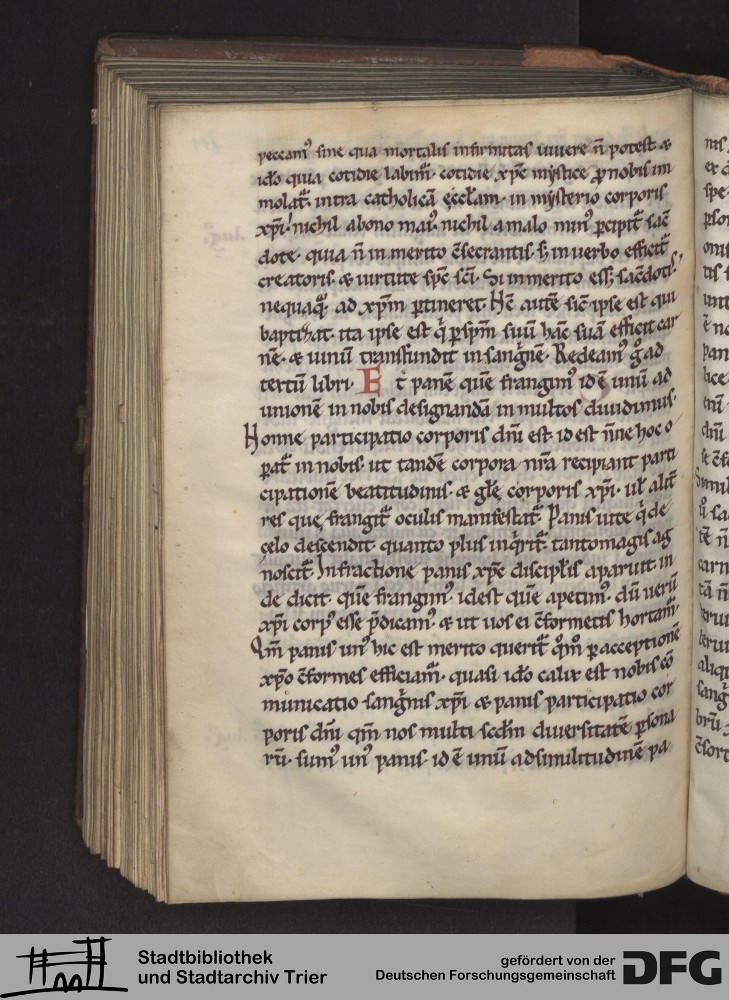 peccamꝰ sine qua mortalis infirmitas uiuere n̄ potest &
idō quia cotidie labimͬ· cotidie xp̄c mystice ꝓ nobis im
molatͬ· intra catholicā ęccl̄am· in mysterio corporis
xpı̄! nichil a bono maiꝰ· nichil a malo minꝰ ꝑcipitͬ sac̄
dote· quia n̄ in merito c̄secrantis· s; in uerbo efficitͬ
creatoris· & uirtute sp̄c sc̄i· Si in merito ess; sac̄dotis·
nequaq̄ͣ ad xp̄m ꝑtineret· Hc̄ autē sic̄ ipse est qui
baptizat· ita ipse est q̇ ꝑ sp̄m suū hāc suā efficit car
nē· & uinū transfundit in sanḡnē· Redeamꝰ g̊ ad
tertiū libri· Et panē quē frangimꝰ id ē unū ad
unionē in nobis designandā in multos diuidimus·
Honne participatio corporis dn̄i est id est n̄ne hoc o
ꝑatͬ in nobis· ut tandē corpora nr̄a recipiant parti
cipationē beatitudinis· & glę corporis xpı̄· ul̄ alit̄
res quę frangitͬ oculis manifestatͬ· Panis uite q̇ de
cęlo descendit· quanto plus inq̇ritͬ· tanto magis ag
noscitͬ· In fractione panis xp̄c discipl̄is aparuit in
de dicit· quē frangimꝰ· id est quē apetimꝰ· dū uerū
xpı̄ corpꝰ esse p̄dicamꝰ· & ut uos ei c̄formetis hortamͬ·
Qm̄ panis unꝰ hic est merito queritͬ q̊m̊ ꝑ acceptionē
xp̄o c̄formes efficiamͬ· quasi idō calix est nobis cō
municatio sanḡnis xpı̄ & panis participatio cor
poris dn̄i qm̄ nos multi scd̄m diuersitatē ꝑsona
rū· sumꝰ unꝰ panis· id ē unū ad similitudinē pa
Stadtbibliothek
und Stadtarchiv Trier
gefördert von der
Deutschen Forschungsgemeinschaft
DFG